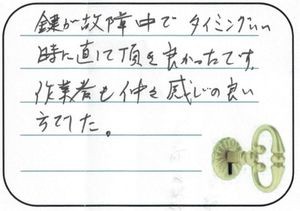 鍵が故障中でタイミングいい
時に直して頂き良かったです。
作業者も仲々感じの良い
方でした。